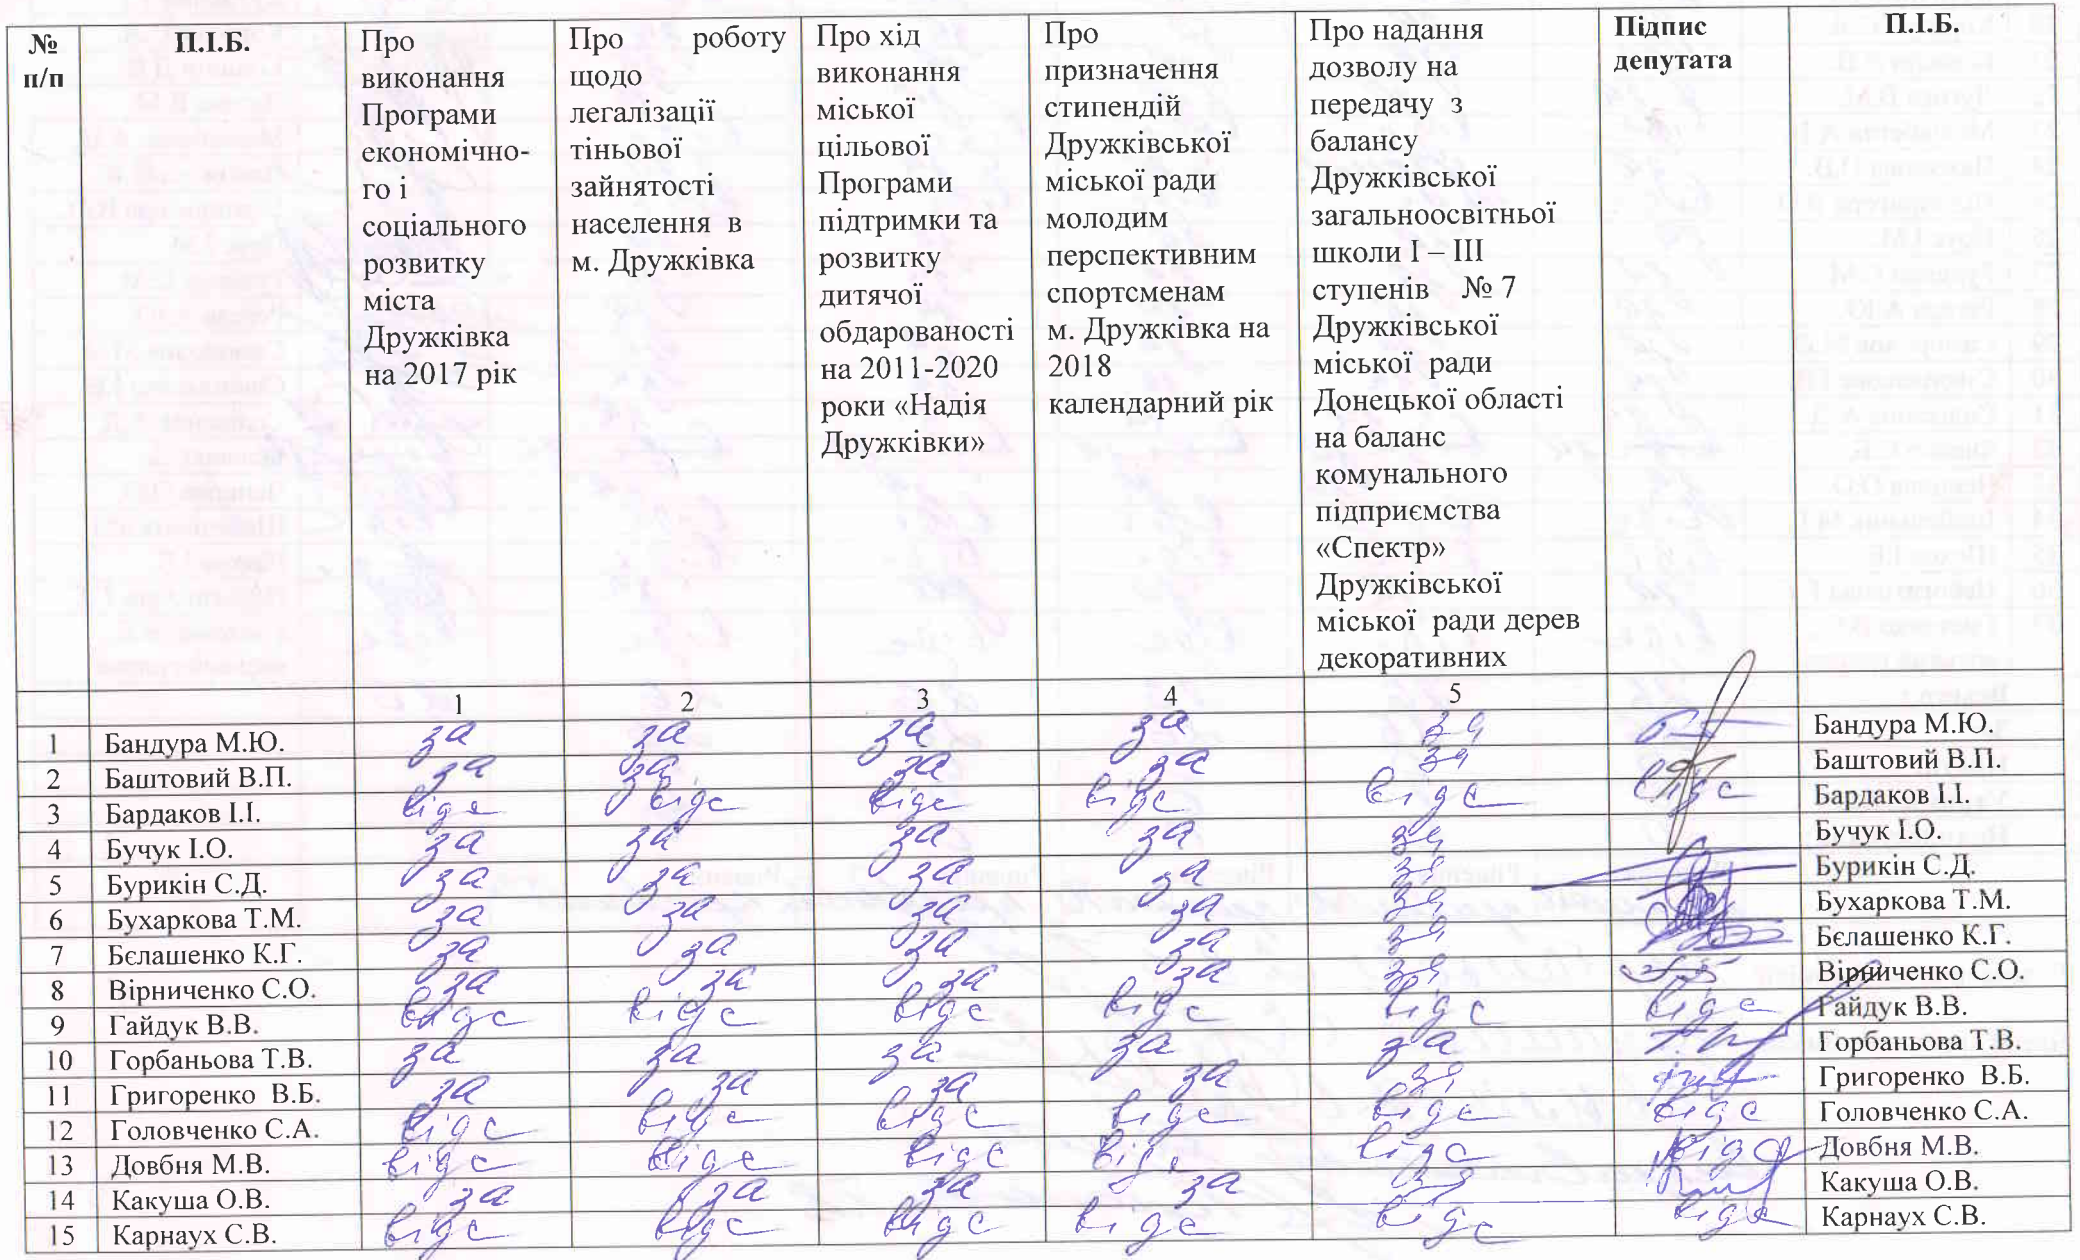 № п/п | П.І.Б. | Про виконання Програми економічно-го і соціального розвитку міста Дружківка на 2017 рік | Про роботу щодо легалізації тіньової зайнятості населення в м. Дружківка | Про хід виконання міської цільової Програми підтримки та розвитку дитячої обдарованості на 2011-2020 роки «Надія Дружківки» | Про призначення стипендій Дружківської міської ради молодим перспективним спортсменам м. Дружківка на 2018 календарний рік | Про надання дозволу на передачу з балансу Дружківської загальноосвітньої школи І – ІІІ ступенів № 7 Дружківської міської ради Донецької області на баланс комунального підприємства «Спектр» Дружківської міської ради дерев декоративних | Підпис депутата | П.І.Б.
1 | 2 | 3 | 4 | 5
1 | Бандура М.Ю. | за | за | за | за | за | Бандура М.Ю.
2 | Баштовий В.П. | за | за | за | за | за | Баштовий В.П.
3 | Бардаков І.І. | відс | відс | відс | відс | відс | відс | Бардаков І.І.
4 | Бучук І.О. | за | за | за | за | за | Бучук І.О.
5 | Бурикін С.Д. | за | за | за | за | за | Бурикін С.Д.
6 | Бухаркова Т.М. | за | за | за | за | за | Бухаркова Т.М.
7 | Бєлашенко К.Г. | за | за | за | за | за | Бєлашенко К.Г.
8 | Вірниченко С.О. | за | за | за | за | за | Вірниченко С.О.
9 | Гайдук В.В. | відс | відс | відс | відс | відс | відс | Гайдук В.В.
10 | Горбаньова Т.В. | за | за | за | за | за | Горбаньова Т.В.
11 | Григоренко В.Б. | за | за | за | за | за | Григоренко В.Б.
12 | Головченко С.А. | відс | відс | відс | відс | відс | відс | Головченко С.А.
13 | Довбня М.В. | відс | відс | відс | відс | відс | відс | Довбня М.В.
14 | Какуша О.В. | за | за | за | за | за | Какуша О.В.
15 | Карнаух С.В. | відс | відс | відс | відс | відс | відс | Карнаух С.В.